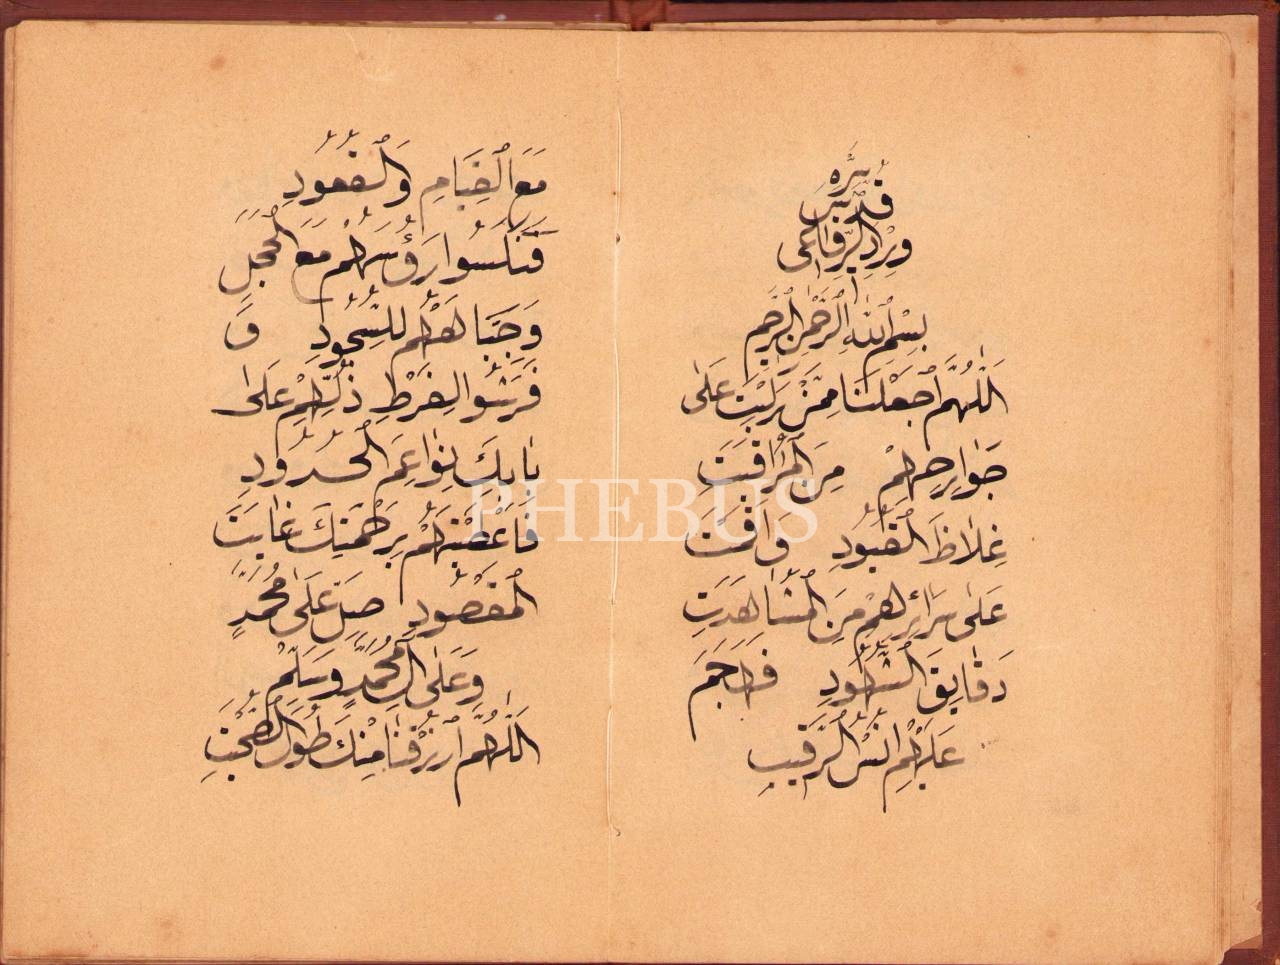 ورد الرفاعي
قدس
سره
بسم الله الرحمن الرحيم
اللهم اجعلنا ممن ربيت على
جوارحهم من المراقبت
غلاظ القيود واقمت
على سرائرهم من المشاهدت
دقايق الشهود فهجم
عليهم انس الرقيب
مع القيام والقعود
فنكسوا رؤسهم مع الخجل
وجباههم للسجود و
فرشوا لفرط ذلهم على
بابك نواعم الخدود
فاعطيتهم برحمتك غايت
المقصود صل على محمد
وعلى آل محمد وسلم
اللهم ارزقنا منك طول الصحبت
PHEBUS